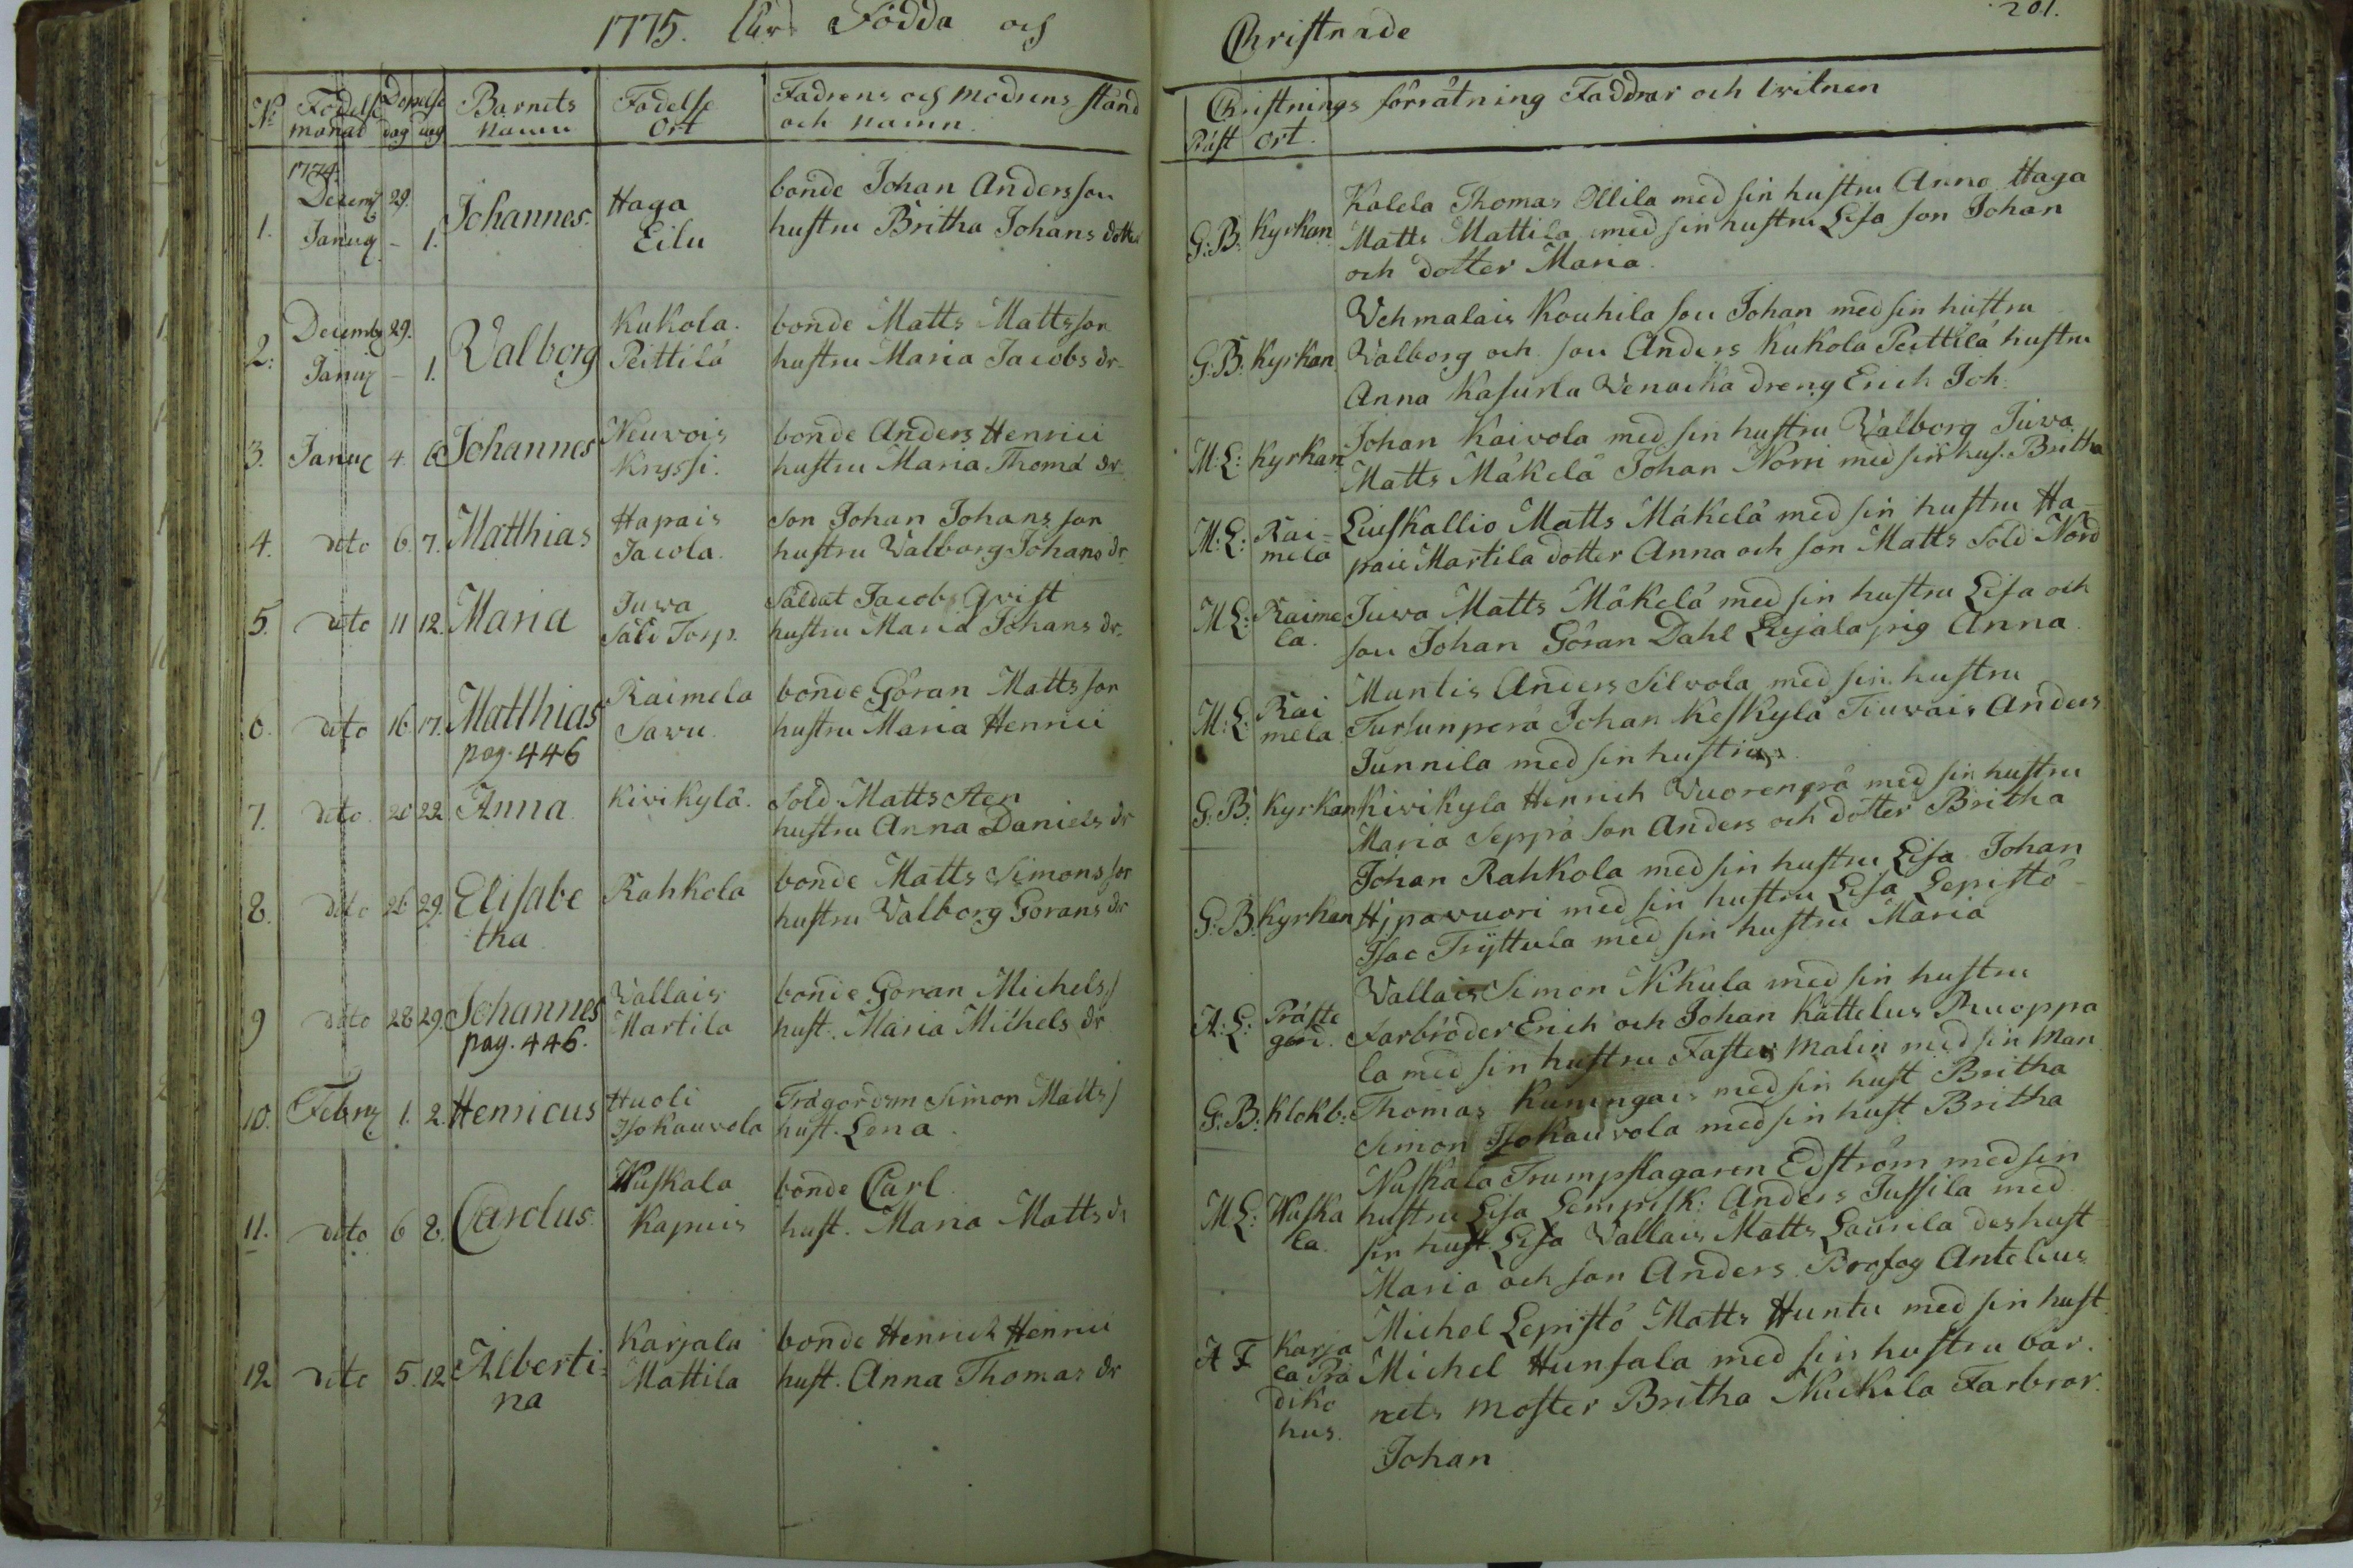 1775. Åhrs Födda och Christnade
201.
No Födelse månad dag Döpelse dag Barnets namn Födelse Ort Fadrens och modrens stånd och namn.
Christnings förrätning Faddrar och witnen
Präst ort.
1774.
1. Decemb 29. Januar - 1. Johannes. Haga Eilu
bonde Johan Andersson
hustru Britha Johans dotter
G: B: Kyrkan
Kalela Thomas Ollila med sin hustru Anna Haga
Matts Mattila med sin hustru Lisa son Johan
och dotter Maria.
2: Decemb 29. Januar - 1. Valborg Kukola. Peittilä
bonde Matts Mattsson
hustru Maria Jacobs dr
G: B: Kyrkan
Vehmalais Kouhila son Johan med sin hustru
Valborg och son Anders Kukola Peittilä hustru
Anna Kasurla Venacka dreng Erich Joh.
3. Januar 4. 6 Johannes Neuvois Kryssi.
bonde Anders Henrici
hustru Maria Thomä dr
M: L: Kyrkan
Johan Kaivola med sin hustru Valborg Juva
Matts Mäkelä Johan Norri med sin hus. Britha
4. dito 6. 7. Matthias Hapais Jacola.
son Johan Johansson
hustru Valborg Johans dr
M: L: Raimela
Liuskallio Matts Mäkelä med sin hustru Ha-
pais Martila dotter Anna och son Matts Sold Nord
5. dito 11 12. Maria Juva Sold Torp.
Soldat Jacob Qvist
hustru Maria Johans dr.
M L: Raimela.
Juva Matts Mäkelä med sin hustru Lisa och
son Johan Göran Dahl Lujala pig Anna
6. dito 16. 17. Matthias pag. 446 Raimela Savu.
bonde Göran Mattsson
hustru Maria Henrici
M: L: Raimela
Muntis Anders Silvola med sin hustru
Tursunperä Johan Keskylä Tiuvais Anders
Junnila med sin hustru
7. dito 20 22 Anna Kivikylä.
Sold. Matts Sten
hustru Anna Daniels dr
G: B: Kyrkan
Kivikyla Henrich Vuorenprä med sin hustru
Maria Seppä son Anders och dotter Britha
8. dito 26 29. Elisabetha Rahkola
bonde Matts Simonsson
hustru Valborg Görans dr
G: B: Kyrkan
Johan Rahkola med sin hustru Lisa Johan
Hjpavuori med sin hustru Lisa Lepistö
Isac Tryttula med sin hustru Maria
9 dito 28 29. Johannes pag. 446. Vallais Martila
bonde Göran Michels
hust. Maria Michels dr
A: L: Prästegård.
Vallais Simon Nikula med sin hustru
Farbröder Erich och Johan Kattelus Ruoppa
la med sin hustru Faster Malin med sin Man
10. Febru 1. 2. Henricus Huoli Isokauvola
Trägordsm Simon Matts
hust. Lena.
G: B: Klokb:
Thomas Kuningais med sin hust Britha
Simon Isokauvola med sin hust Britha
11. dito 6 8. Carolus. Nuskala Kapuis
bonde Carl
hust. Maria Matts dr
M L: Nuskala.
Nuskala Trumpslagaren Edström med sin
hustru Lisa Lempisk: Anders Jussila med
sin hust Lisa Vallais Matts Laurila des hust
Maria och son Anders. Brofog Antelius
12 dito 5. 12 Albertina Karjala Mattila
bonde Henrich Henrici
hust. Anna Thomas dr
A F Karjala Prädiko hus.
Michel Lepistö Matts Huntu med sin hust
Michel Hunsala med sin hustru bar.
nets moster Britha Nickila Farbror.
Johan